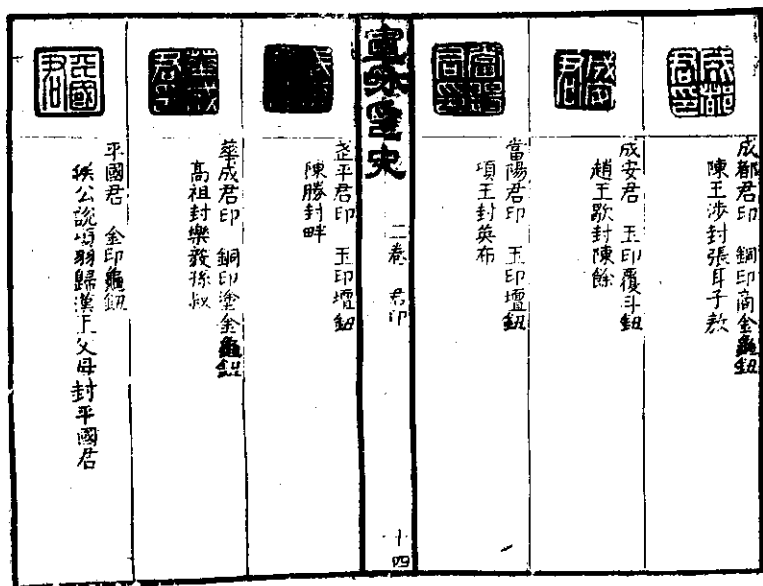 成都君印
成都君印 銅印商金龜鈕
陳王涉封張耳子敖
成安君
成安君 玉印覆斗鈕
趙王歇封陳餘
當陽君印
當陽君印 玉印壇鈕
項王封英布
宣龢印史 二卷 君印 十四
武平君印 玉印壇鈕
陳勝封畔
華成君印
華成君印 銅印塗金龜鈕
高祖封樂毅孫叔
平國君
平國君 金印龜鈕
矦公說項羽歸漢王父母封平國君